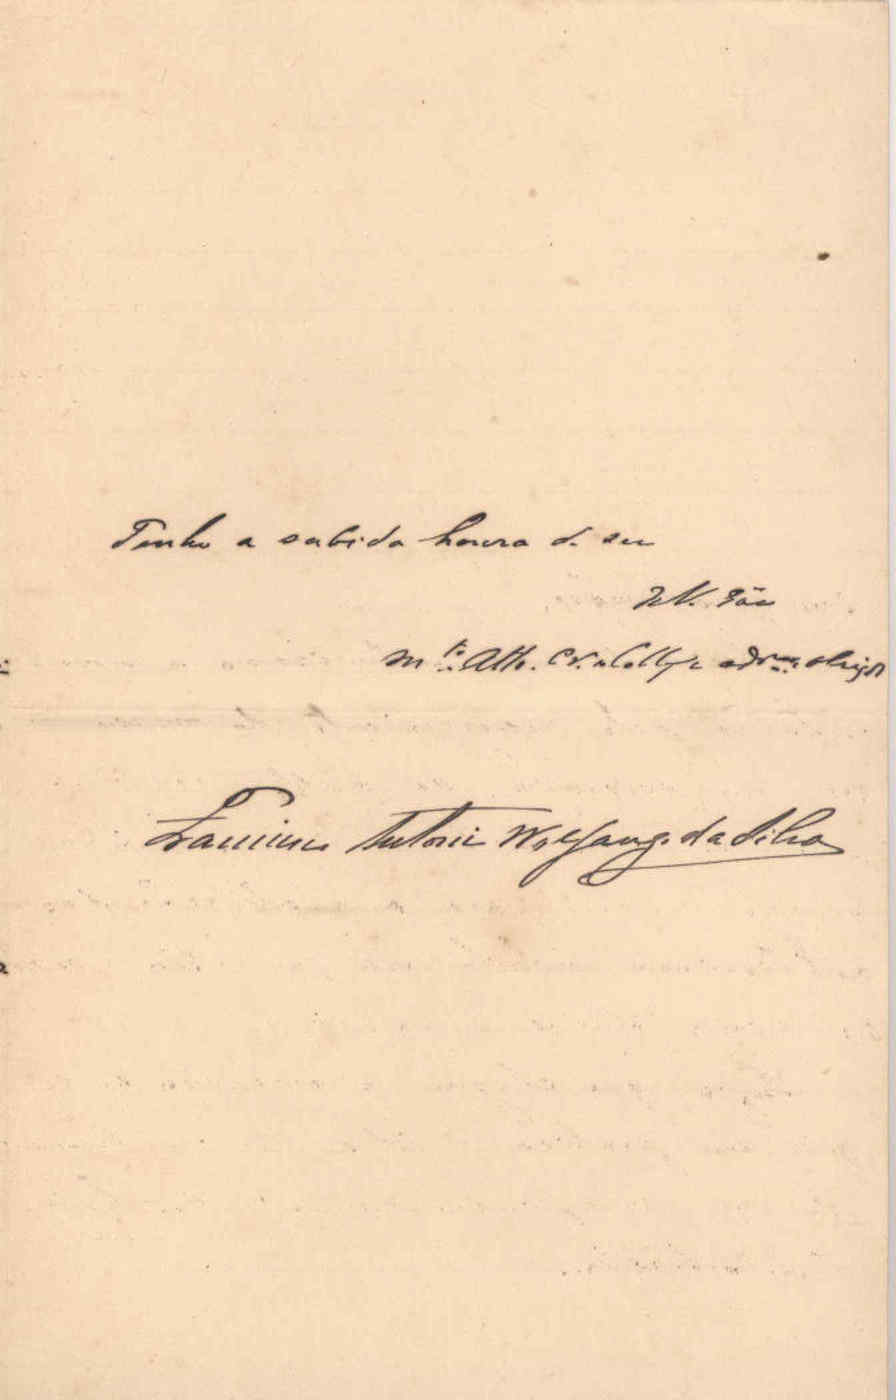 Tenho a subida honra de ser
De V. Exª
mto. Atto. Cr. e Collega
Francisco Antonio Wolfang da Silva